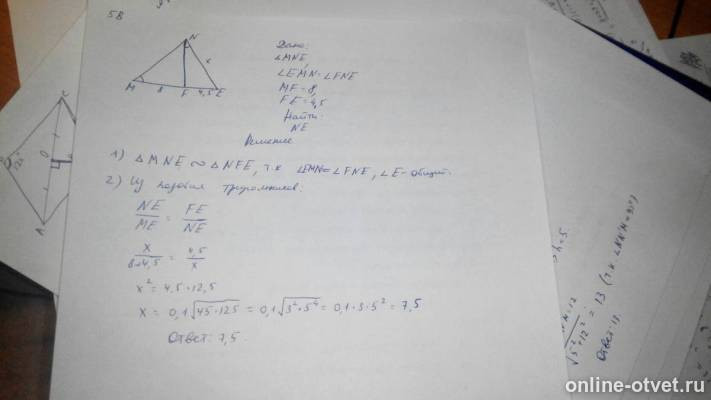 58
N
M 8 F 4,5 E
Дано:
∠MNE
∠EMN = ∠FNE
MF = 8,
FE = 4,5
Найти:
NE
Решение
1) △MNE ∾ △NFE, т.к ∠EMN = ∠FNE, ∠E - общий.
2) Из подобия треугольников:
NE/ME = FE/NE
x/8+4,5 = 4,5/x
x² = 4,5·12,5
x = 0,1√45·125 = 0,1√3²·5⁴ = 0,1·3·5² = 7,5
Ответ: 7,5
C
O
A
√5²+12² = 13 (т.к.
Ответ: 13.
online-otvet.ru